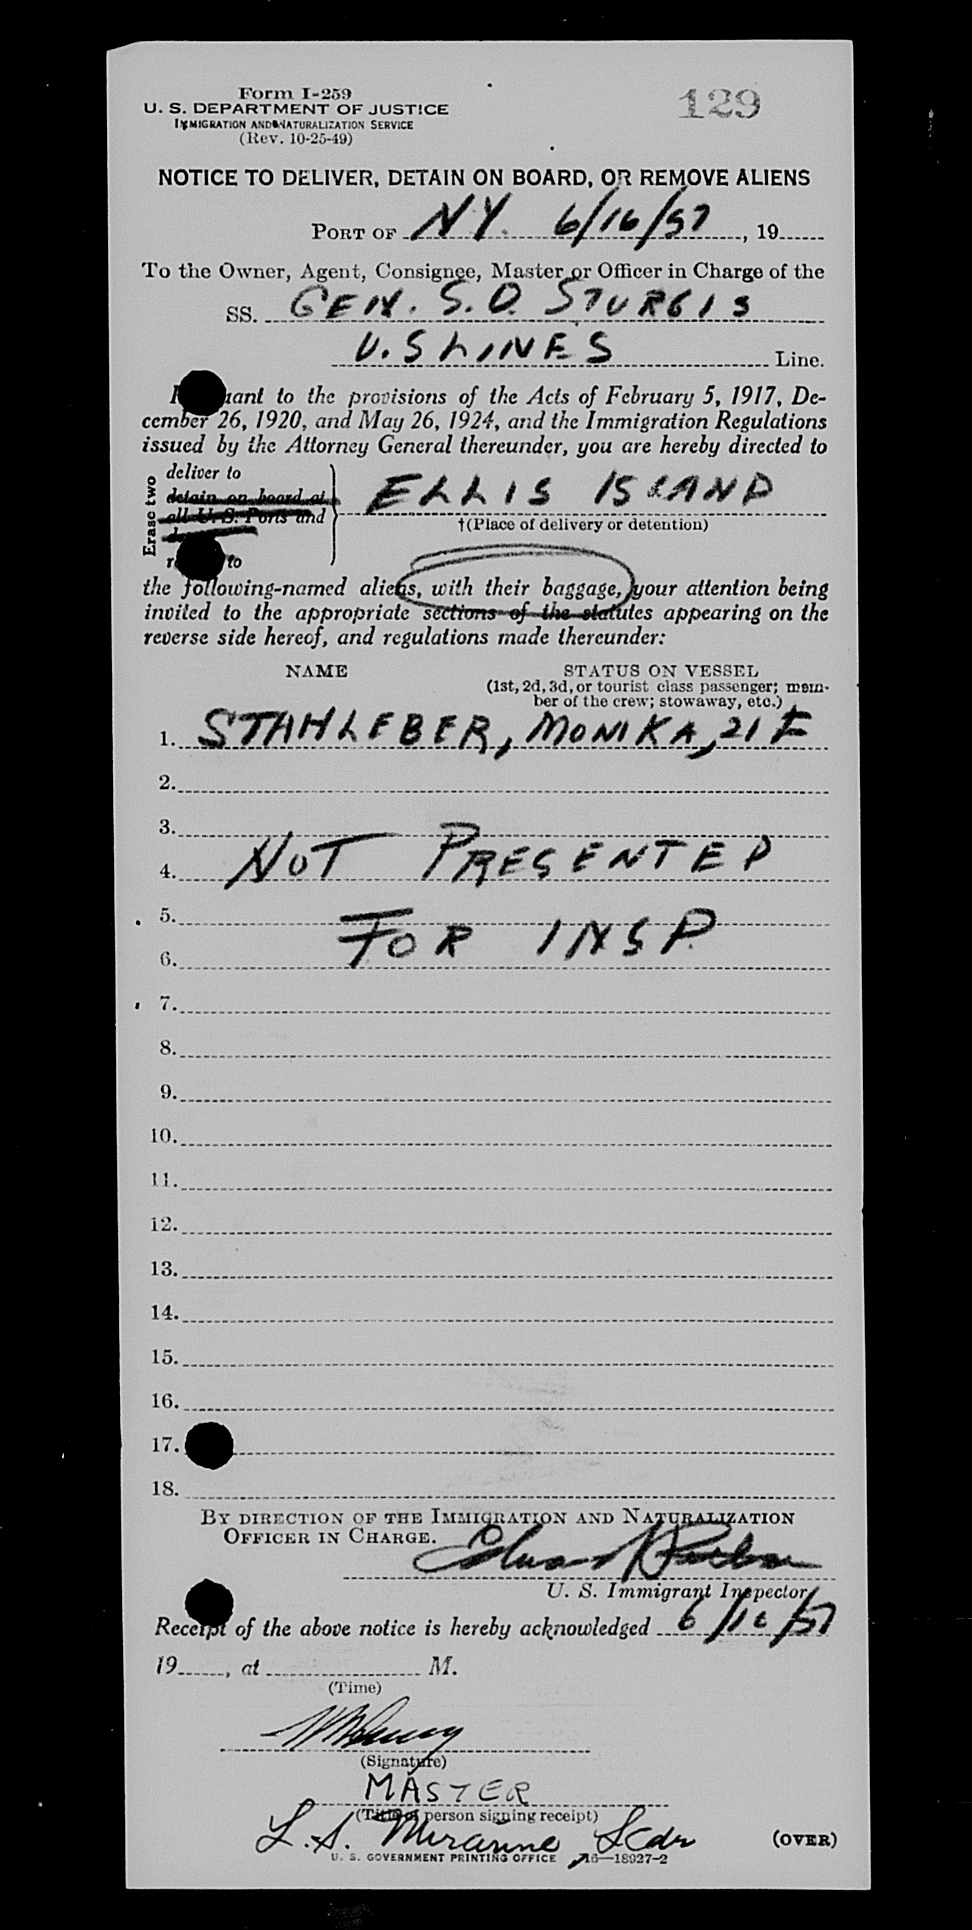 Form I-259
129
U. S. DEPARTMENT OF JUSTICE
IMMIGRATION AND NATURALIZATION SERVICE
(Rev. 10-25-49)
NOTICE TO DELIVER, DETAIN ON BOARD, OR REMOVE ALIENS
PORT OF NY. 6/16/57, 19
To the Owner, Agent, Consignee, Master or Officer in Charge of the
SS. GEN. S. D. STURGIS
U.S LINES Line.
uant to the provisions of the Acts of February 5, 1917, De-
cember 26, 1920, and May 26, 1924, and the Immigration Regulations
issued by the Attorney General thereunder, you are hereby directed to
Erase two
deliver to
detain on board at
all U. S. Ports and
to
ELLIS ISLAND
†(Place of delivery or detention)
the following-named aliens, with their baggage, your attention being
invited to the appropriate sections of the statutes appearing on the
reverse side hereof, and regulations made thereunder:
NAME STATUS ON VESSEL
(1st, 2d, 3d, or tourist class passenger; mem-
ber of the crew; stowaway, etc.)
1. STAHLEBER, MONIKA, 21 F
2.
3.
4. NOT PRESENTED
5.
6. FOR INSP
7.
8.
9.
10.
11.
12.
13.
14.
15.
16.
17.
18.
BY DIRECTION OF THE IMMIGRATION AND NATURALIZATION
OFFICER IN CHARGE.
U. S. Immigrant Inspector
Receipt of the above notice is hereby acknowledged 6/16/57
19, at M.
(Time)
(Signature)
MASTER
(Title of person signing receipt)
L. S. Lcdr
(OVER)
U. S. GOVERNMENT PRINTING OFFICE 16—18927-2